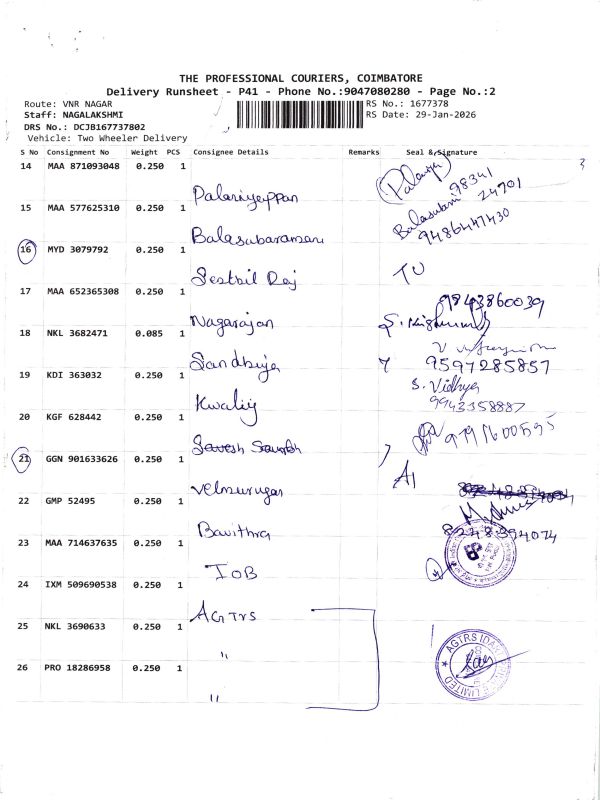 THE PROFESSIONAL COURIERS, COIMBATORE
Delivery Runsheet - P41 - Phone No.:9047080280 - Page No.:2
Route: VNR NAGAR RS No.: 1677378
Staff: NAGALAKSHMI RS Date: 29-Jan-2026
DRS No.: DCJB167737802
Vehicle: Two Wheeler Delivery
S No Consignment No Weight PCS Consignee Details Remarks Seal & Signature
14 MAA 871093048 0.250 1 Palaniyappan
15 MAA 577625310 0.250 1 Balasubaramani 98341 24701
9486447430
16 MYD 3079792 0.250 1 Senthil Raj TU
17 MAA 652365308 0.250 1 Nagarajan 9843860039
18 NKL 3682471 0.085 1 Sandhiya
9597285857
19 KDI 363032 0.250 1 Kwaliy S. Vidhya
9943358887
20 KGF 628442 0.250 1
21 GGN 901633626 0.250 1 Velmurugan A1
22 GMP 52495 0.250 1 Bavithra
8248394074
23 MAA 714637635 0.250 1 IOB
24 IXM 509690538 0.250 1 AGTRS
25 NKL 3690633 0.250 1 "
26 PRO 18286958 0.250 1 "